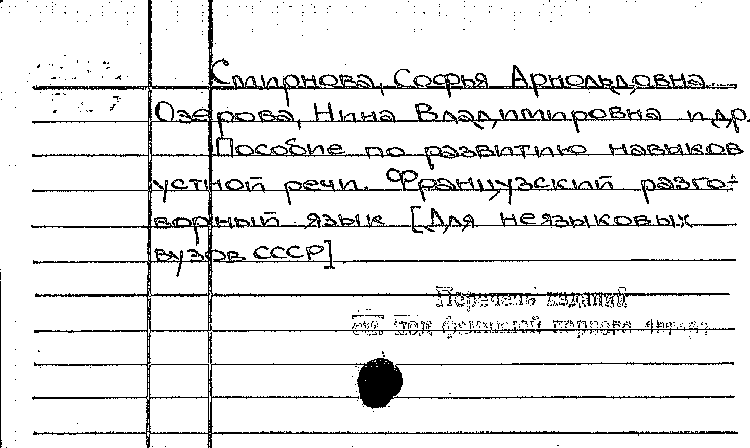 Смирнова, Софья Арнольдовна.
Озерова, Нина Владимировна и др.
Пособие по развитию навыков
устной речи. Французский разго-
ворный язык [Для неязыковых
вузов СССР]
Перечень изданий
см. под фамилией первого автора